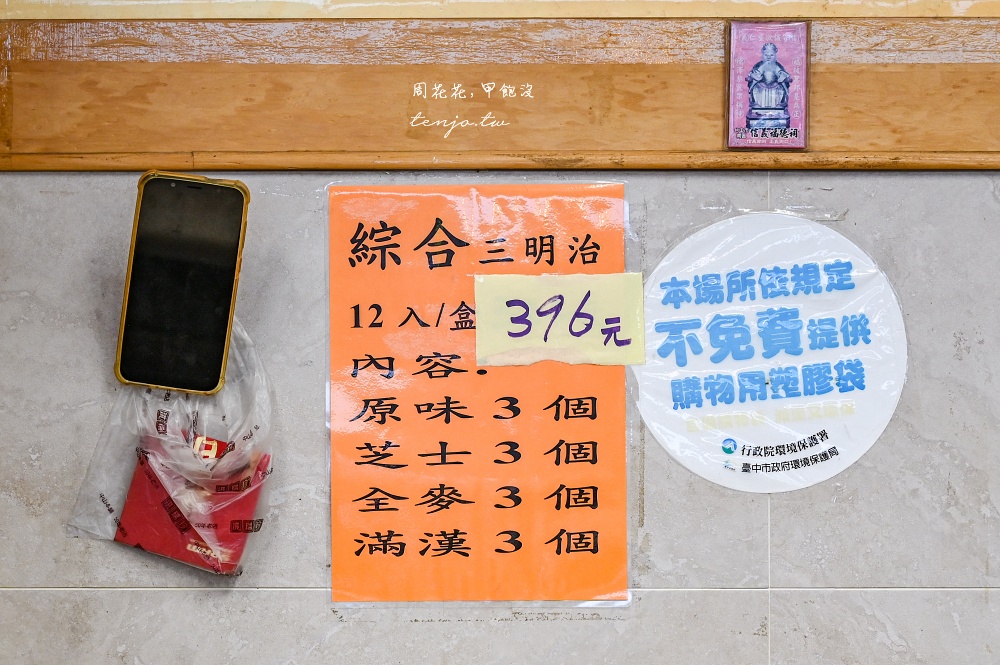 周花花,甲飽沒
tenjo.tw
信義福德祠
綜合三明治
12入/盒
396元
內容:
原味3個
芝士3個
全麥3個
滿漢3個
本場所依規定
不免費提供
購物用塑膠袋
行政院環境保護署
臺中市政府環境保護局